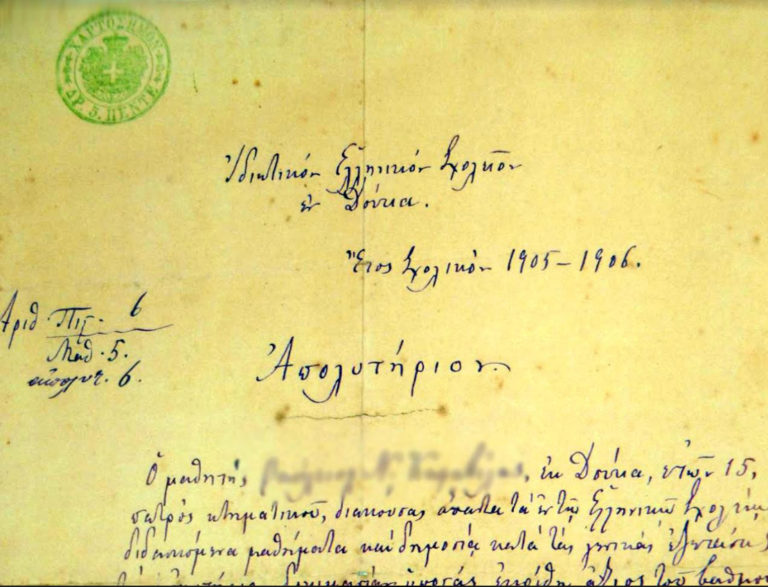 ΧΑΡΤΟΣΗΜΟΝ
ΔΡ. 5. ΠΕΝΤΕ
Ἰδιωτικόν Ἑλληνικόν Σχολεῖον
ἐν Δούκα.
Ἔτος Σχολικόν 1905 – 1906.
Ἀριθ. Πιστ. 6
Μαθ. 5.
ἀπολυτ. 6.
Ἀπολυτήριον.
Ὁ μαθητής ἐκ Δούκα, ἐτῶν 15,
πατρός κτηματικοῦ, διακούσας ἅπαντα τά ἐν τῷ Ἑλληνικῷ Σχολείῳ
διδασκόμενα μαθήματα καί δημοσίᾳ κατά τάς γενικάς ἐξετάσεις
ἐκρίθη ἄξιος τοῦ βαθμοῦ